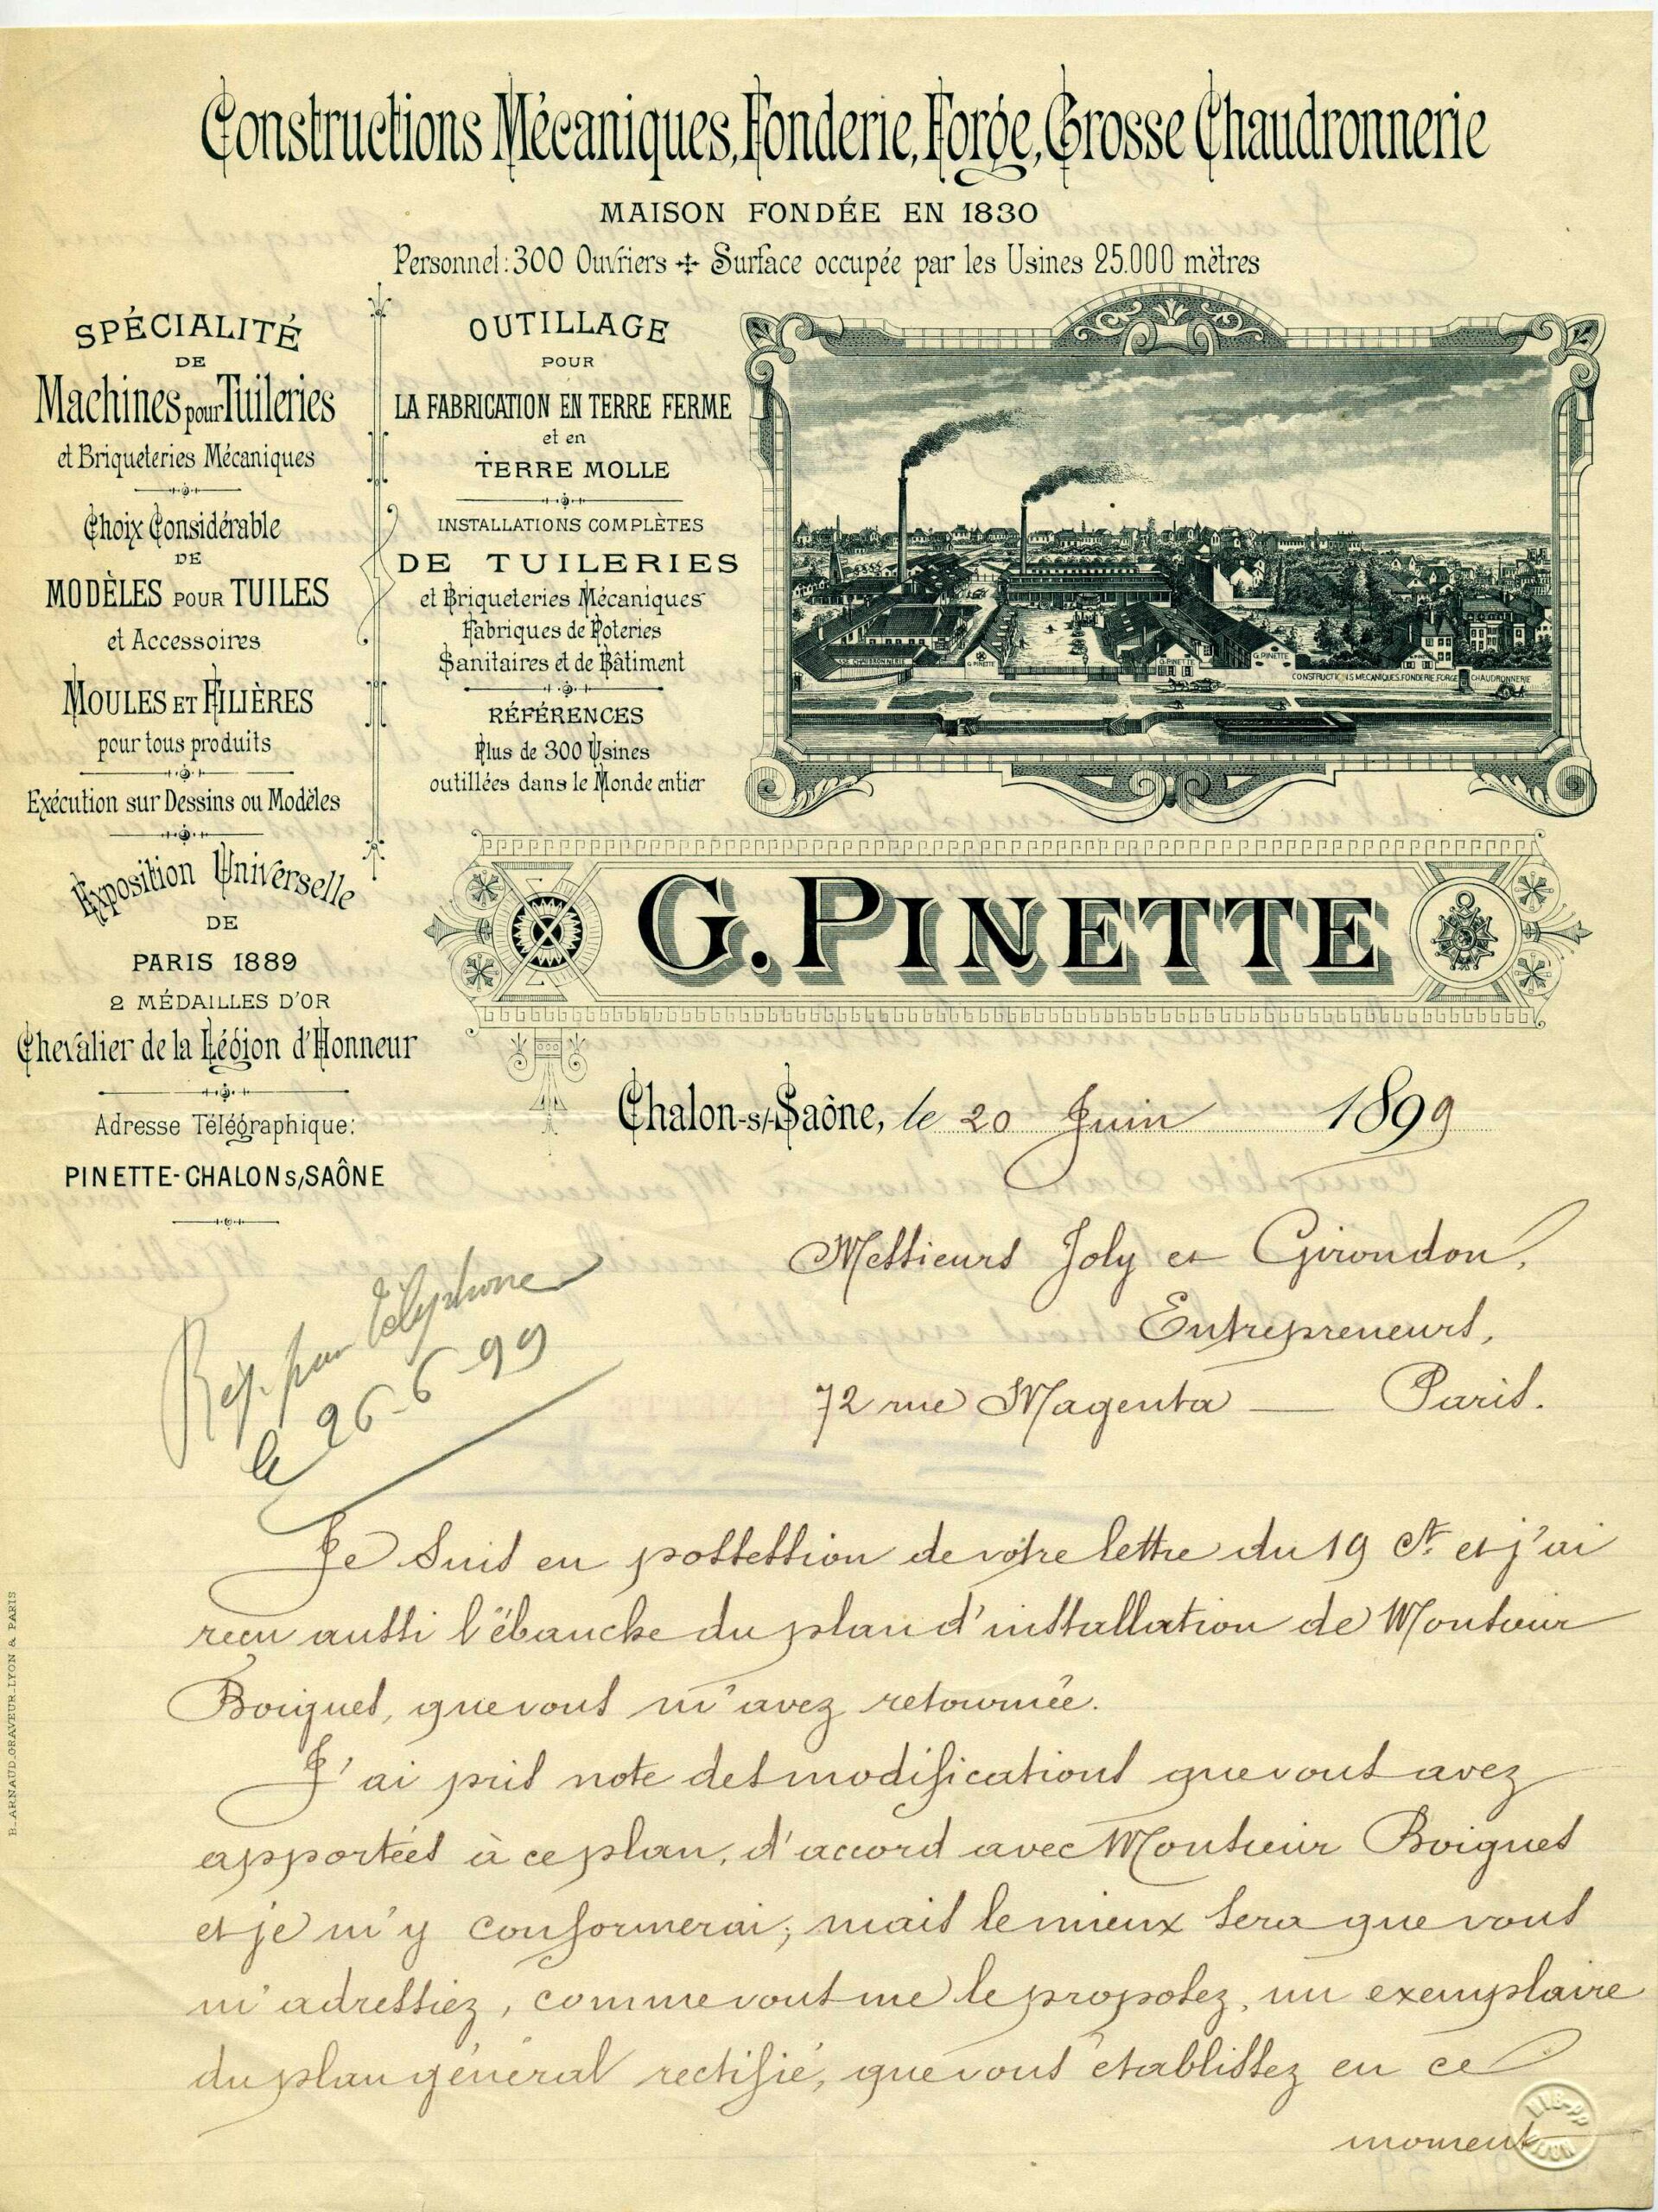 Constructions Mécaniques, Fonderie, Forge, Grosse Chaudronnerie
MAISON FONDÉE EN 1830
Personnel: 300 Ouvriers Surface occupée par les Usines 25.000 mètres
SPÉCIALITÉ
DE
Machines pour Tuileries
et Briqueteries Mécaniques
Choix Considérable
DE
MODÈLES POUR TUILES
et Accessoires
MOULES ET FILIÈRES
pour tous produits
Exécution sur Dessins ou Modèles
Exposition Universelle
DE
PARIS 1889
2 MÉDAILLES D'OR
Chevalier de la Légion d'Honneur
Adresse Télégraphique:
PINETTE-CHALON s/SAÔNE
OUTILLAGE
POUR
LA FABRICATION EN TERRE FERME
et en
TERRE MOLLE
INSTALLATIONS COMPLÈTES
DE TUILERIES
et Briqueteries Mécaniques
Fabriques de Poteries
Sanitaires et de Bâtiment
RÉFÉRENCES
Plus de 300 Usines
outillées dans le Monde entier
G. PINETTE
G. PINETTE
G. PINETTE
CONSTRUCTIONS MECANIQUES. FONDERIE. FORGE CHAUDRONNERIE
G. PINETTE
Chalon-s/-Saône, le 20 Juin 1899
Messieurs Joly et Girondon,
Entrepreneurs,
72 rue Magenta — Paris.
Rép. par téléphone
le 26-6-99
Je suis en possession de votre lettre du 19 Ct. et j'ai
reçu aussi l'ébauche du plan d'installation de Monsieur
Boigues, que vous m'avez retournée.
J'ai pris note des modifications que vous avez
apportées à ce plan, d'accord avec Monsieur Boigues
et je m'y conformerai; mais le mieux sera que vous
m'adressiez, comme vous me le proposez, un exemplaire
du plan général rectifié, que vous établissez en ce
moment
B. ARNAUD. GRAVEUR. LYON & PARIS